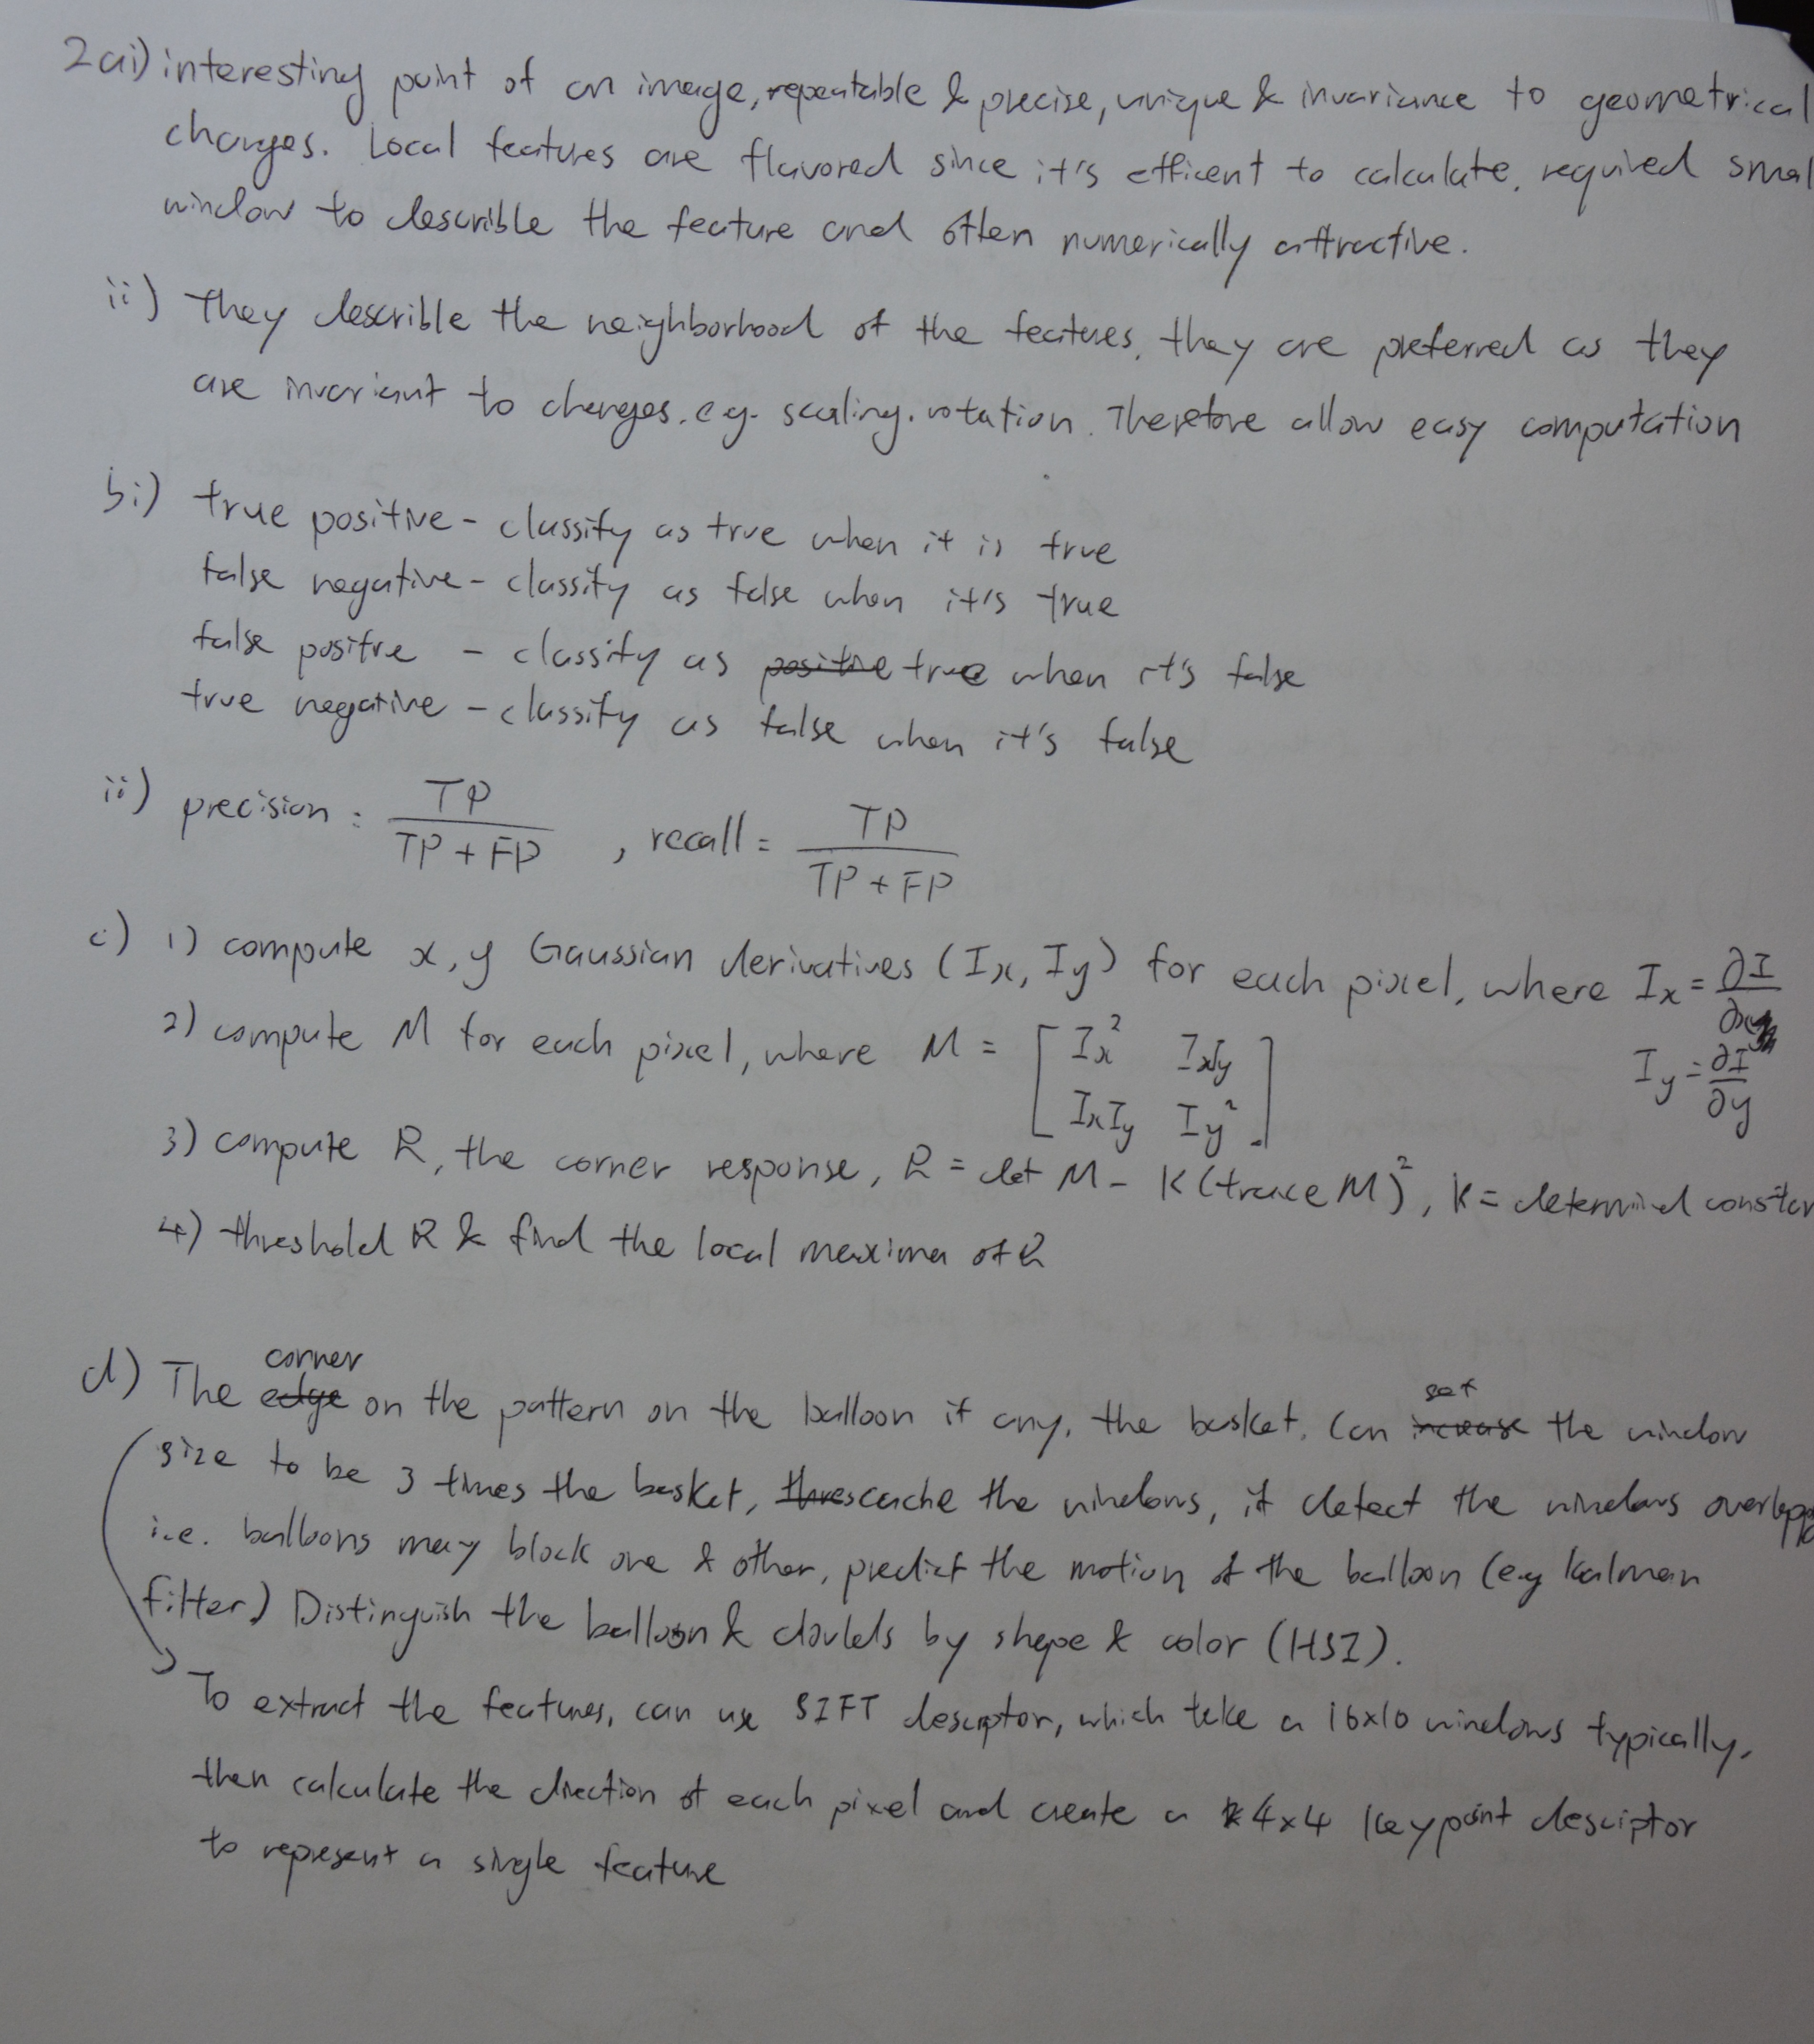 2ai) interesting point of an image, repeatable & precise, unique & invariance to geometrical
changes. Local features are flavored since it's efficent to calculate, required smal
window to describle the feature and often numerically attractive.
ii) They describle the neighborhood of the features, they are preferred as they
are invariant to changes. e.g. scaling, rotation. Therefore allow easy computation
bi) true positive - classify as true when it is true
false negative - classify as false when it's true
false positive - classify as positive true when it's false
true negative - classify as false when it's false
ii) precision = TP / TP + FP , recall = TP / TP + FP
c) 1) compute x, y Gaussian derivatives (Ix, Iy) for each pixel, where Ix = ∂I / ∂x
Iy = ∂I / ∂y
2) compute M for each pixel, where M = [ Ix² IxIy
IxIy Iy² ]
3) compute R, the corner response, R = det M - K (trace M)², K = determined constan
4) threshold R & find the local maxima of R
d) The edge corner on the pattern on the balloon if any, the basket. Can increase set the window
size to be 3 times the basket, thres cache the windows, if detect the windows overlapp
i.e. balloons may block one & other, predict the motion of the balloon (e.g kalman
filter) Distinguish the balloon & clouds by shape & color (HSI).
To extract the features, can use SIFT descriptor, which take a 16x16 windows typically,
then calculate the direction of each pixel and create a 4x4 keypoint desciptor
to represent a single feature